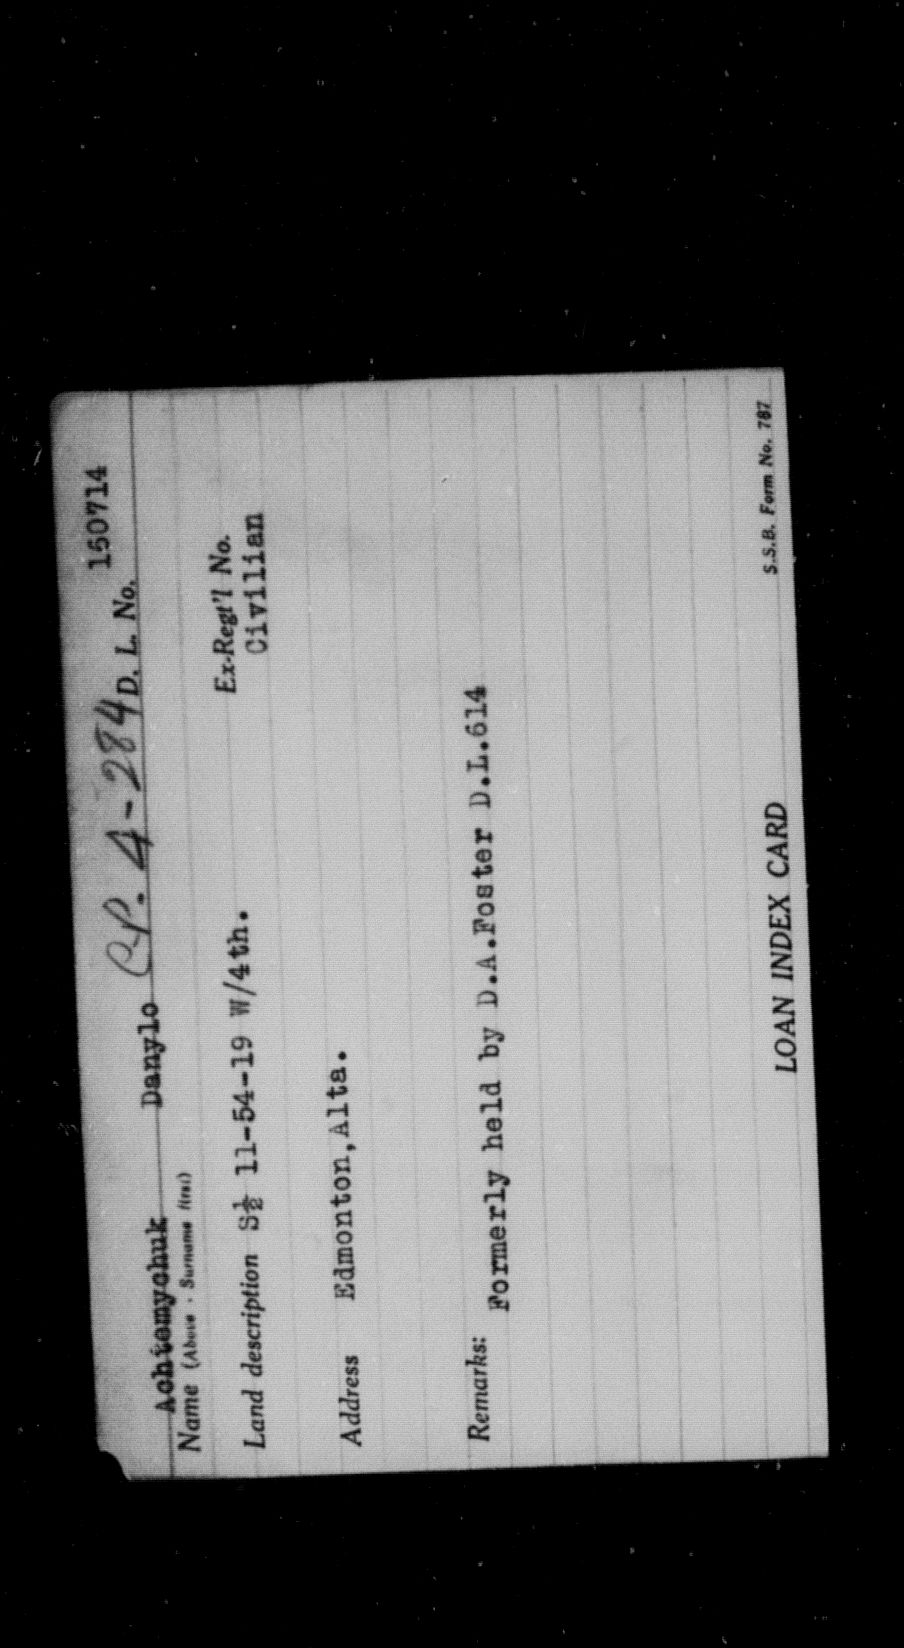 CP. 4-284 D. L. No. 150714
Achtemychuk Danylo
Name (Above - Surname first)
Ex-Regt'l No.
Land description S½ 11-54-19 W/4th. Civilian
Address Edmonton,Alta.
Remarks:
Formerly held by D.A.Foster D.L.614
LOAN INDEX CARD
S.S.B. Form No. 787